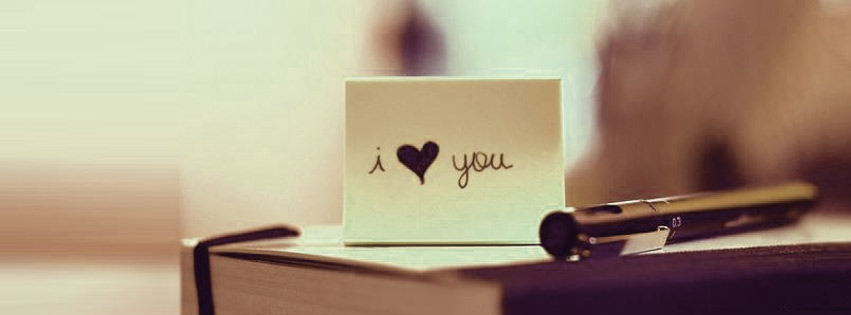 i ♥ you
0.3